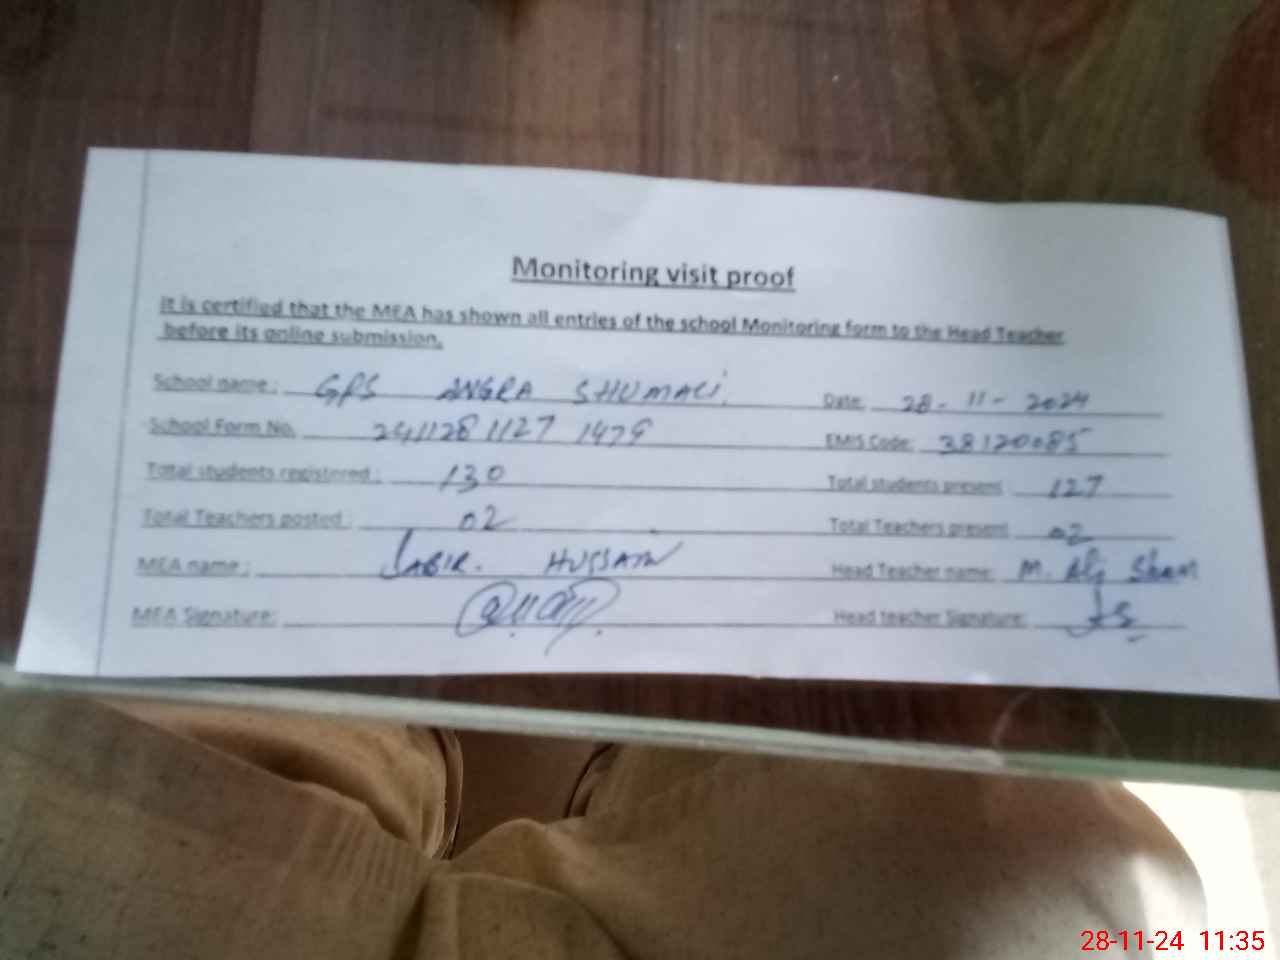 Monitoring visit proof
It is certified that the MEA has shown all entries of the school Monitoring form to the Head Teacher
before its online submission.
School name : GPS ANGRA SHUMALI. Date: 28-11-2024
School Form No. 241128 1127 1479 EMIS Code: 38120085
Total students registered : 130 Total students present : 127
Total Teachers posted : 02 Total Teachers present 02
MEA name : HUSSAIN Head Teacher name: M. Ali
MEA Signature: Head teacher Signature:
28-11-24 11:35